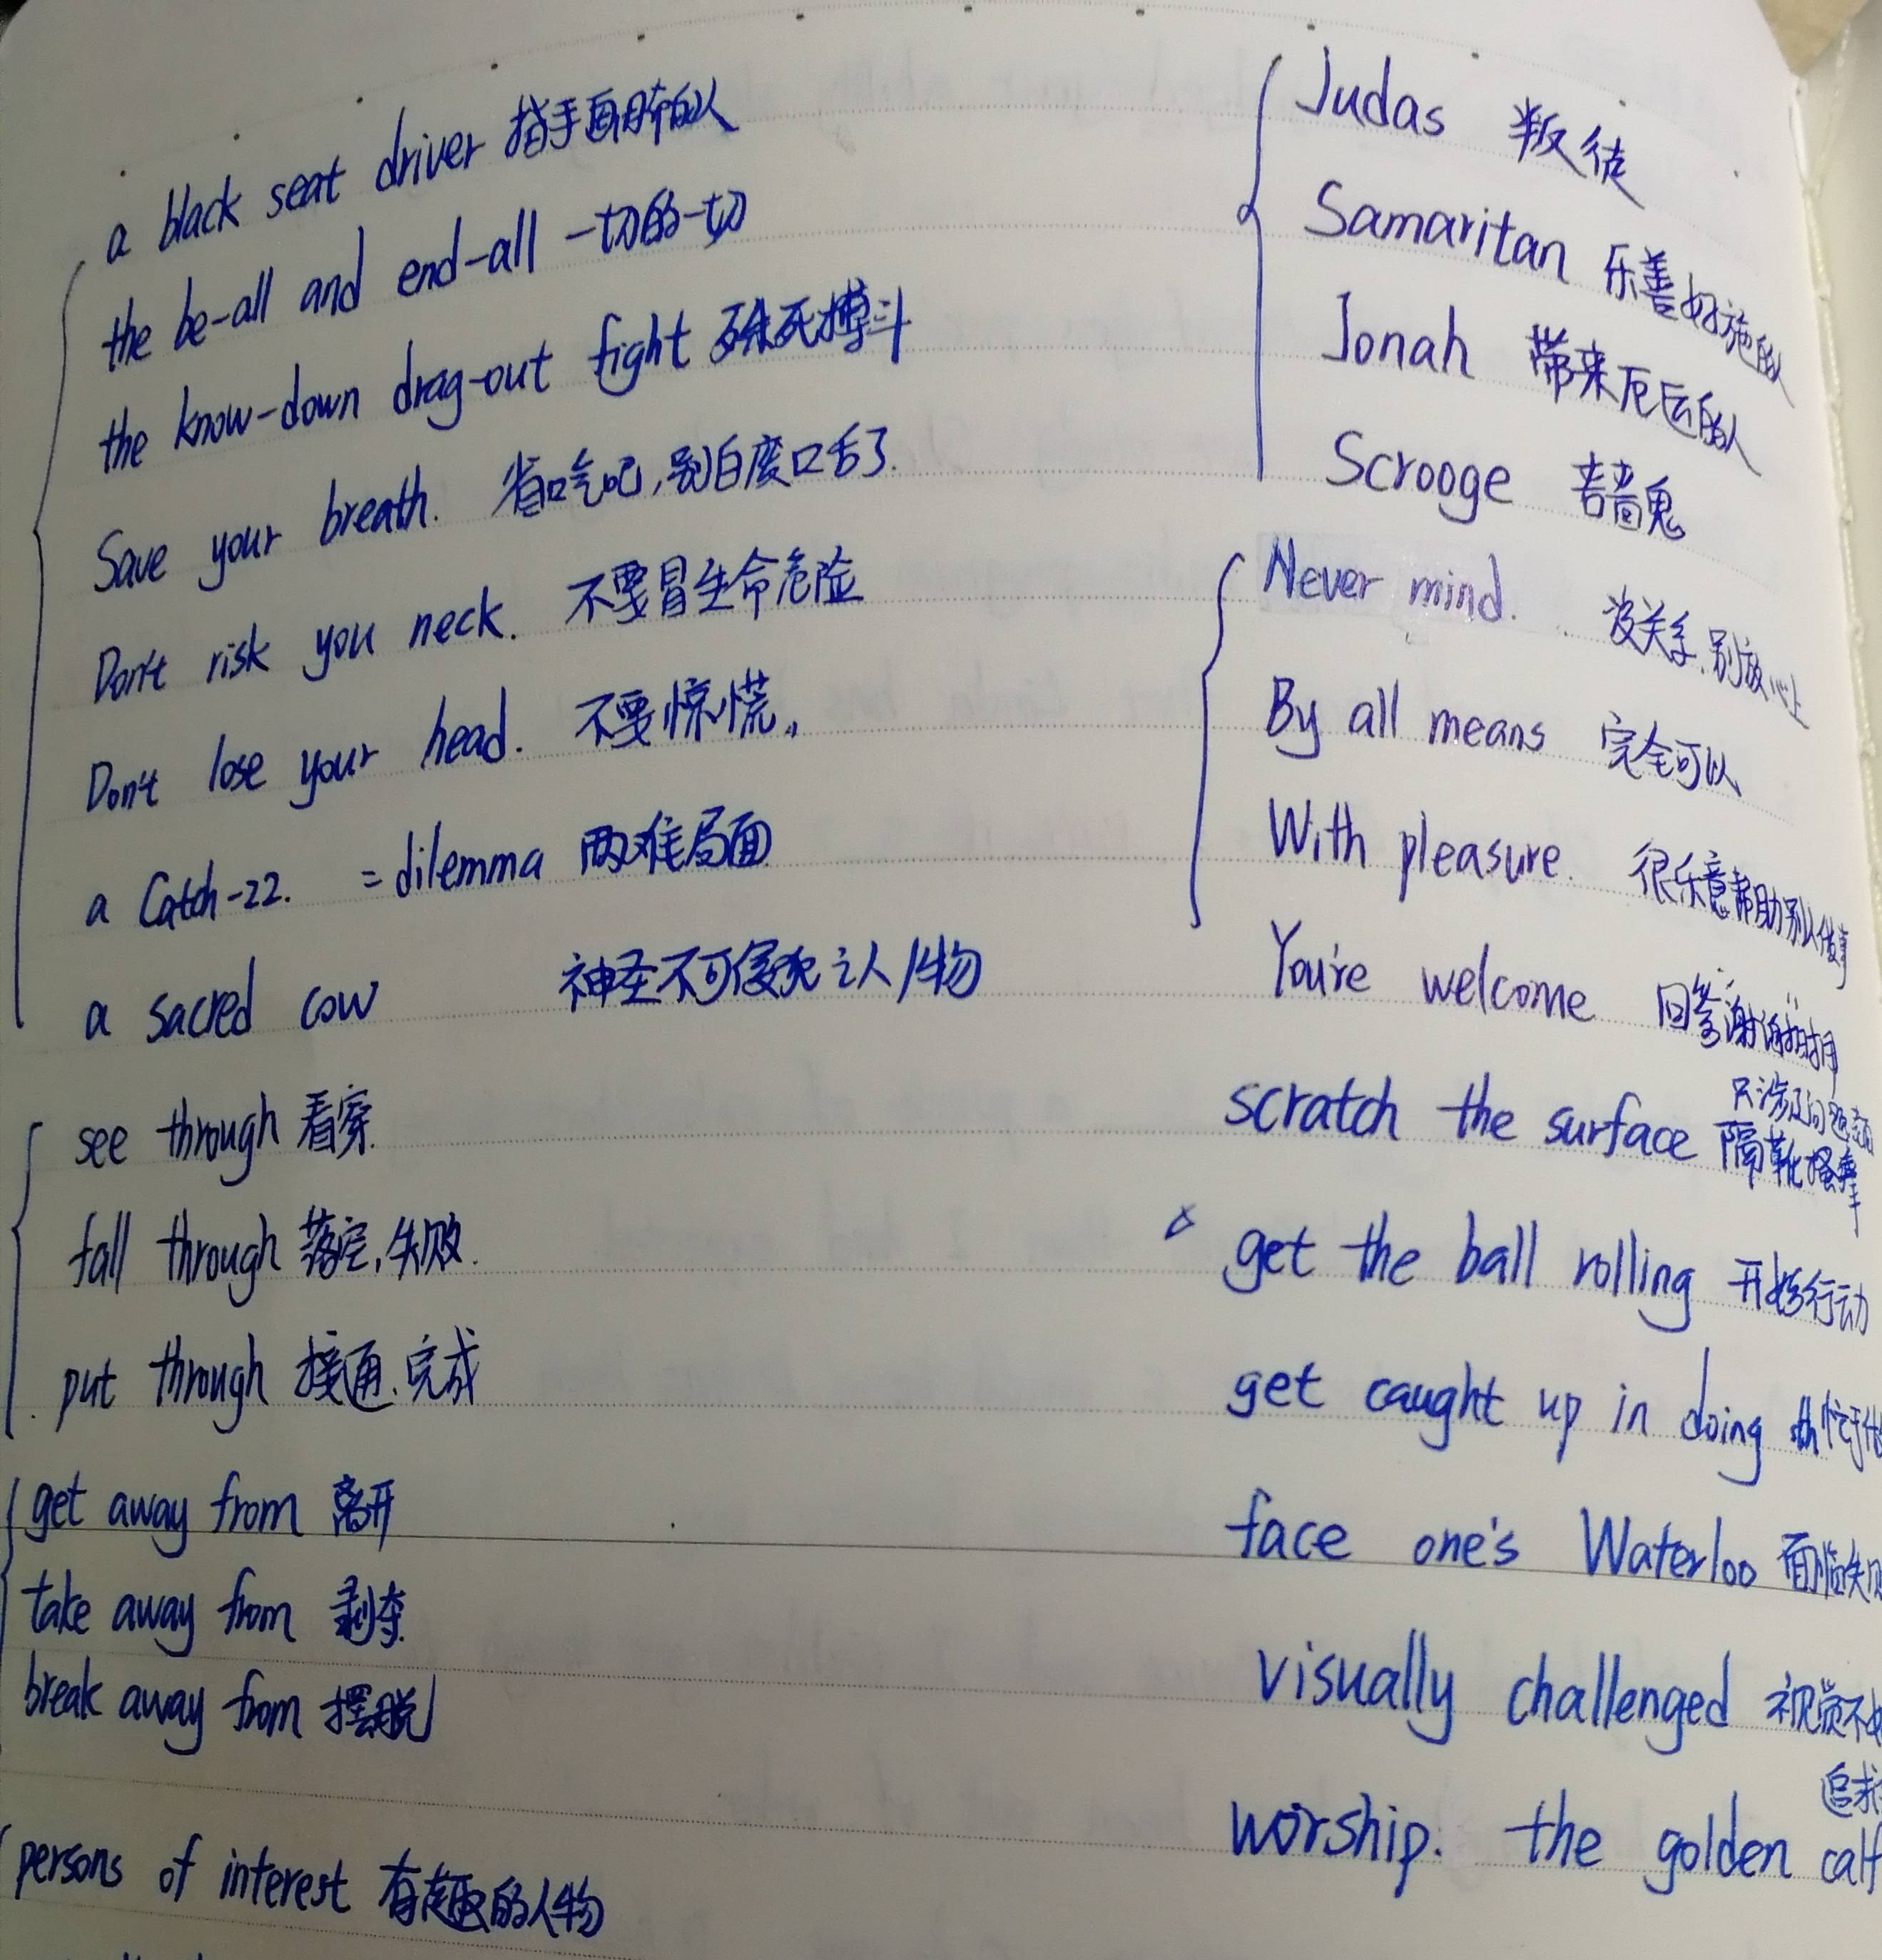 a black seat driver 指手画脚的人
the be-all and end-all 一切的一切
the know-down drag-out fight 殊死搏斗
Save your breath. 省口气吧,别白废口舌了.
Don't risk you neck. 不要冒生命危险
Don't lose your head. 不要惊慌。
a Catch-22. = dilemma 两难局面
a sacred cow 神圣不可侵犯之人/物
see through 看穿.
fall through 落空,失败.
put through 接通.完成
get away from 离开
take away from 剥夺.
break away from 摆脱
persons of interest 有趣的人物
Judas 叛徒
Samaritan 乐善好施的人
Jonah 带来厄运的人
Scrooge 吝啬鬼
Never mind. 没关系.别放心上
By all means 完全可以
With pleasure. 很乐意帮助别人做事
You're welcome 回答谢谢时用
只涉及问题表面
scratch the surface 隔靴搔痒
get the ball rolling 开始行动
get caught up in doing sth 忙于做
face one's Waterloo 面临失败
visually challenged 视觉不
追求
worship. the golden calf